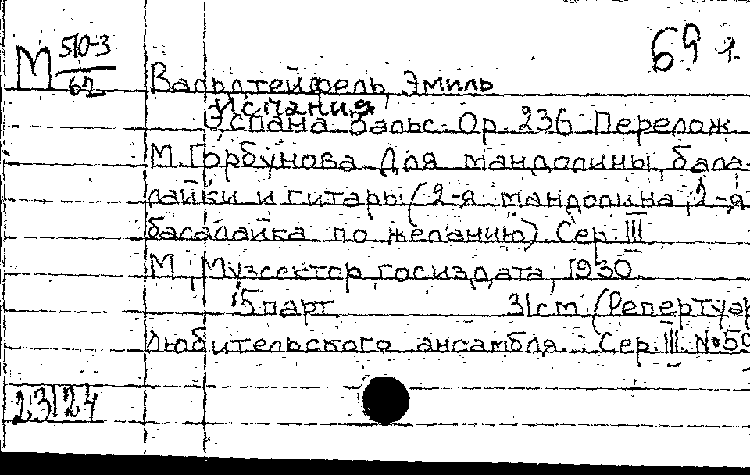 М 510-3
62
69 г.
Вальдтейфель, Эмиль
Испания
Эспана Вальс. Op. 236 Перелож
М. Горбунова Для мандолины, бала-
лайки и гитары (2-я мандолина, 2-я
басалайка по желанию) Сер. III
М., Музсектор госиздата, 1930.
5 парт 31 cm (Репертуар
любительского ансамбля. Сер. III №
23124